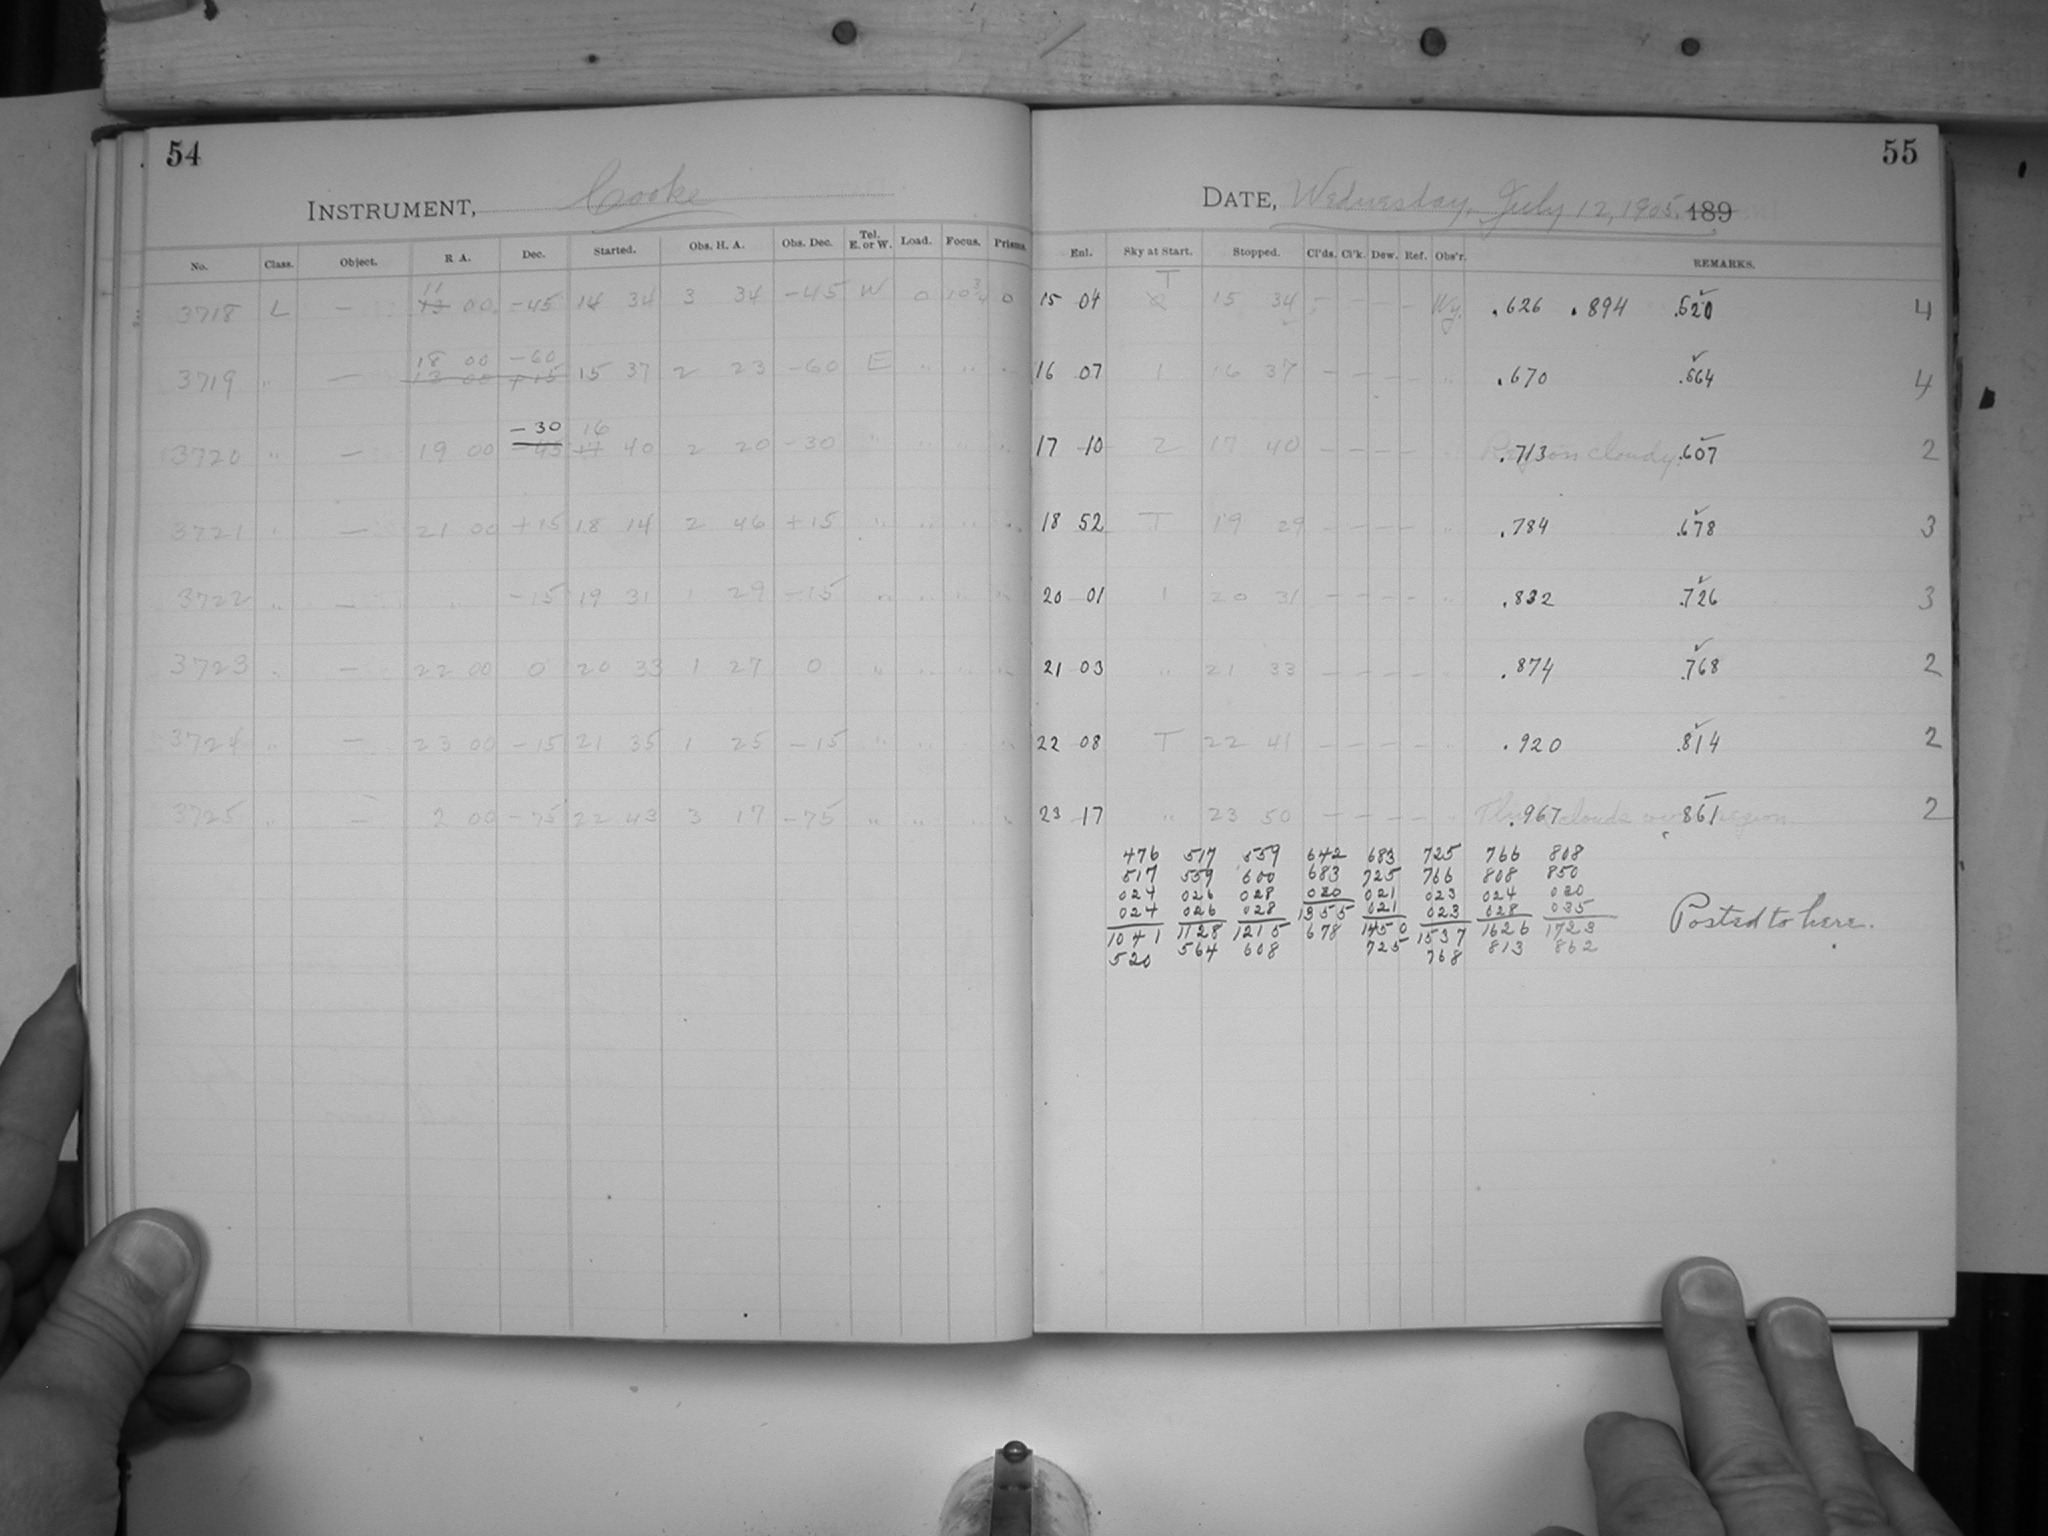 54
INSTRUMENT, Cooke
No. Class. Object. R A. Dec. Started. Obs. H. A. Obs. Dec. Tel. E. or W. Load. Focus. Prisms.
11
3718 L — 13 00 -45 14 34 3 34 -45 W 0 10 3/4 0
18 00 -60
3719 " — 13 00 +15 15 37 2 23 -60 E " " "
-30 16
3720 " — 19 00 -45 17 40 2 20 -30 " "
3721 " — 21 00 +15 18 14 2 46 +15 " " " "
3722 " — " -15 19 31 1 29 -15 " " " "
3723 " — 22 00 0 20 33 1 27 0 " " " "
3724 " — 23 00 -15 21 35 1 25 -15 " " "
3725 " — 2 00 -75 22 43 3 17 -75 " " "
55
DATE, Wednesday, July 12, 1905. 189
Enl. Sky at Start. Stopped. Cl'ds. Cl'k. Dew. Ref. Obs'r. REMARKS.
T
15 04 15 34 - - - - Wy. .626 .894 .520 4
16 07 1 16 37 - - - - " .670 .564 4
17 10 2 17 40 - - - - " Region cloudy. .713 .607 2
18 52 T 19 29 - - - - " .784 .678 3
20 01 1 20 31 - - - - " .832 .726 3
21 03 " 21 33 - - - - " .874 .768 2
22 08 T 22 41 - - - - " .920 .814 2
23 17 " 23 50 - - - - " .967 clouds over region. .861 2
476 517 559 642 683 725 766 808
517 559 600 683 725 766 808 850
024 026 028 020 021 023 024 020
024 026 028 1355 021 023 028 035
1041 1128 1215 678 1450 1537 1626 1723
520 564 608 725 768 813 862
Posted to here.